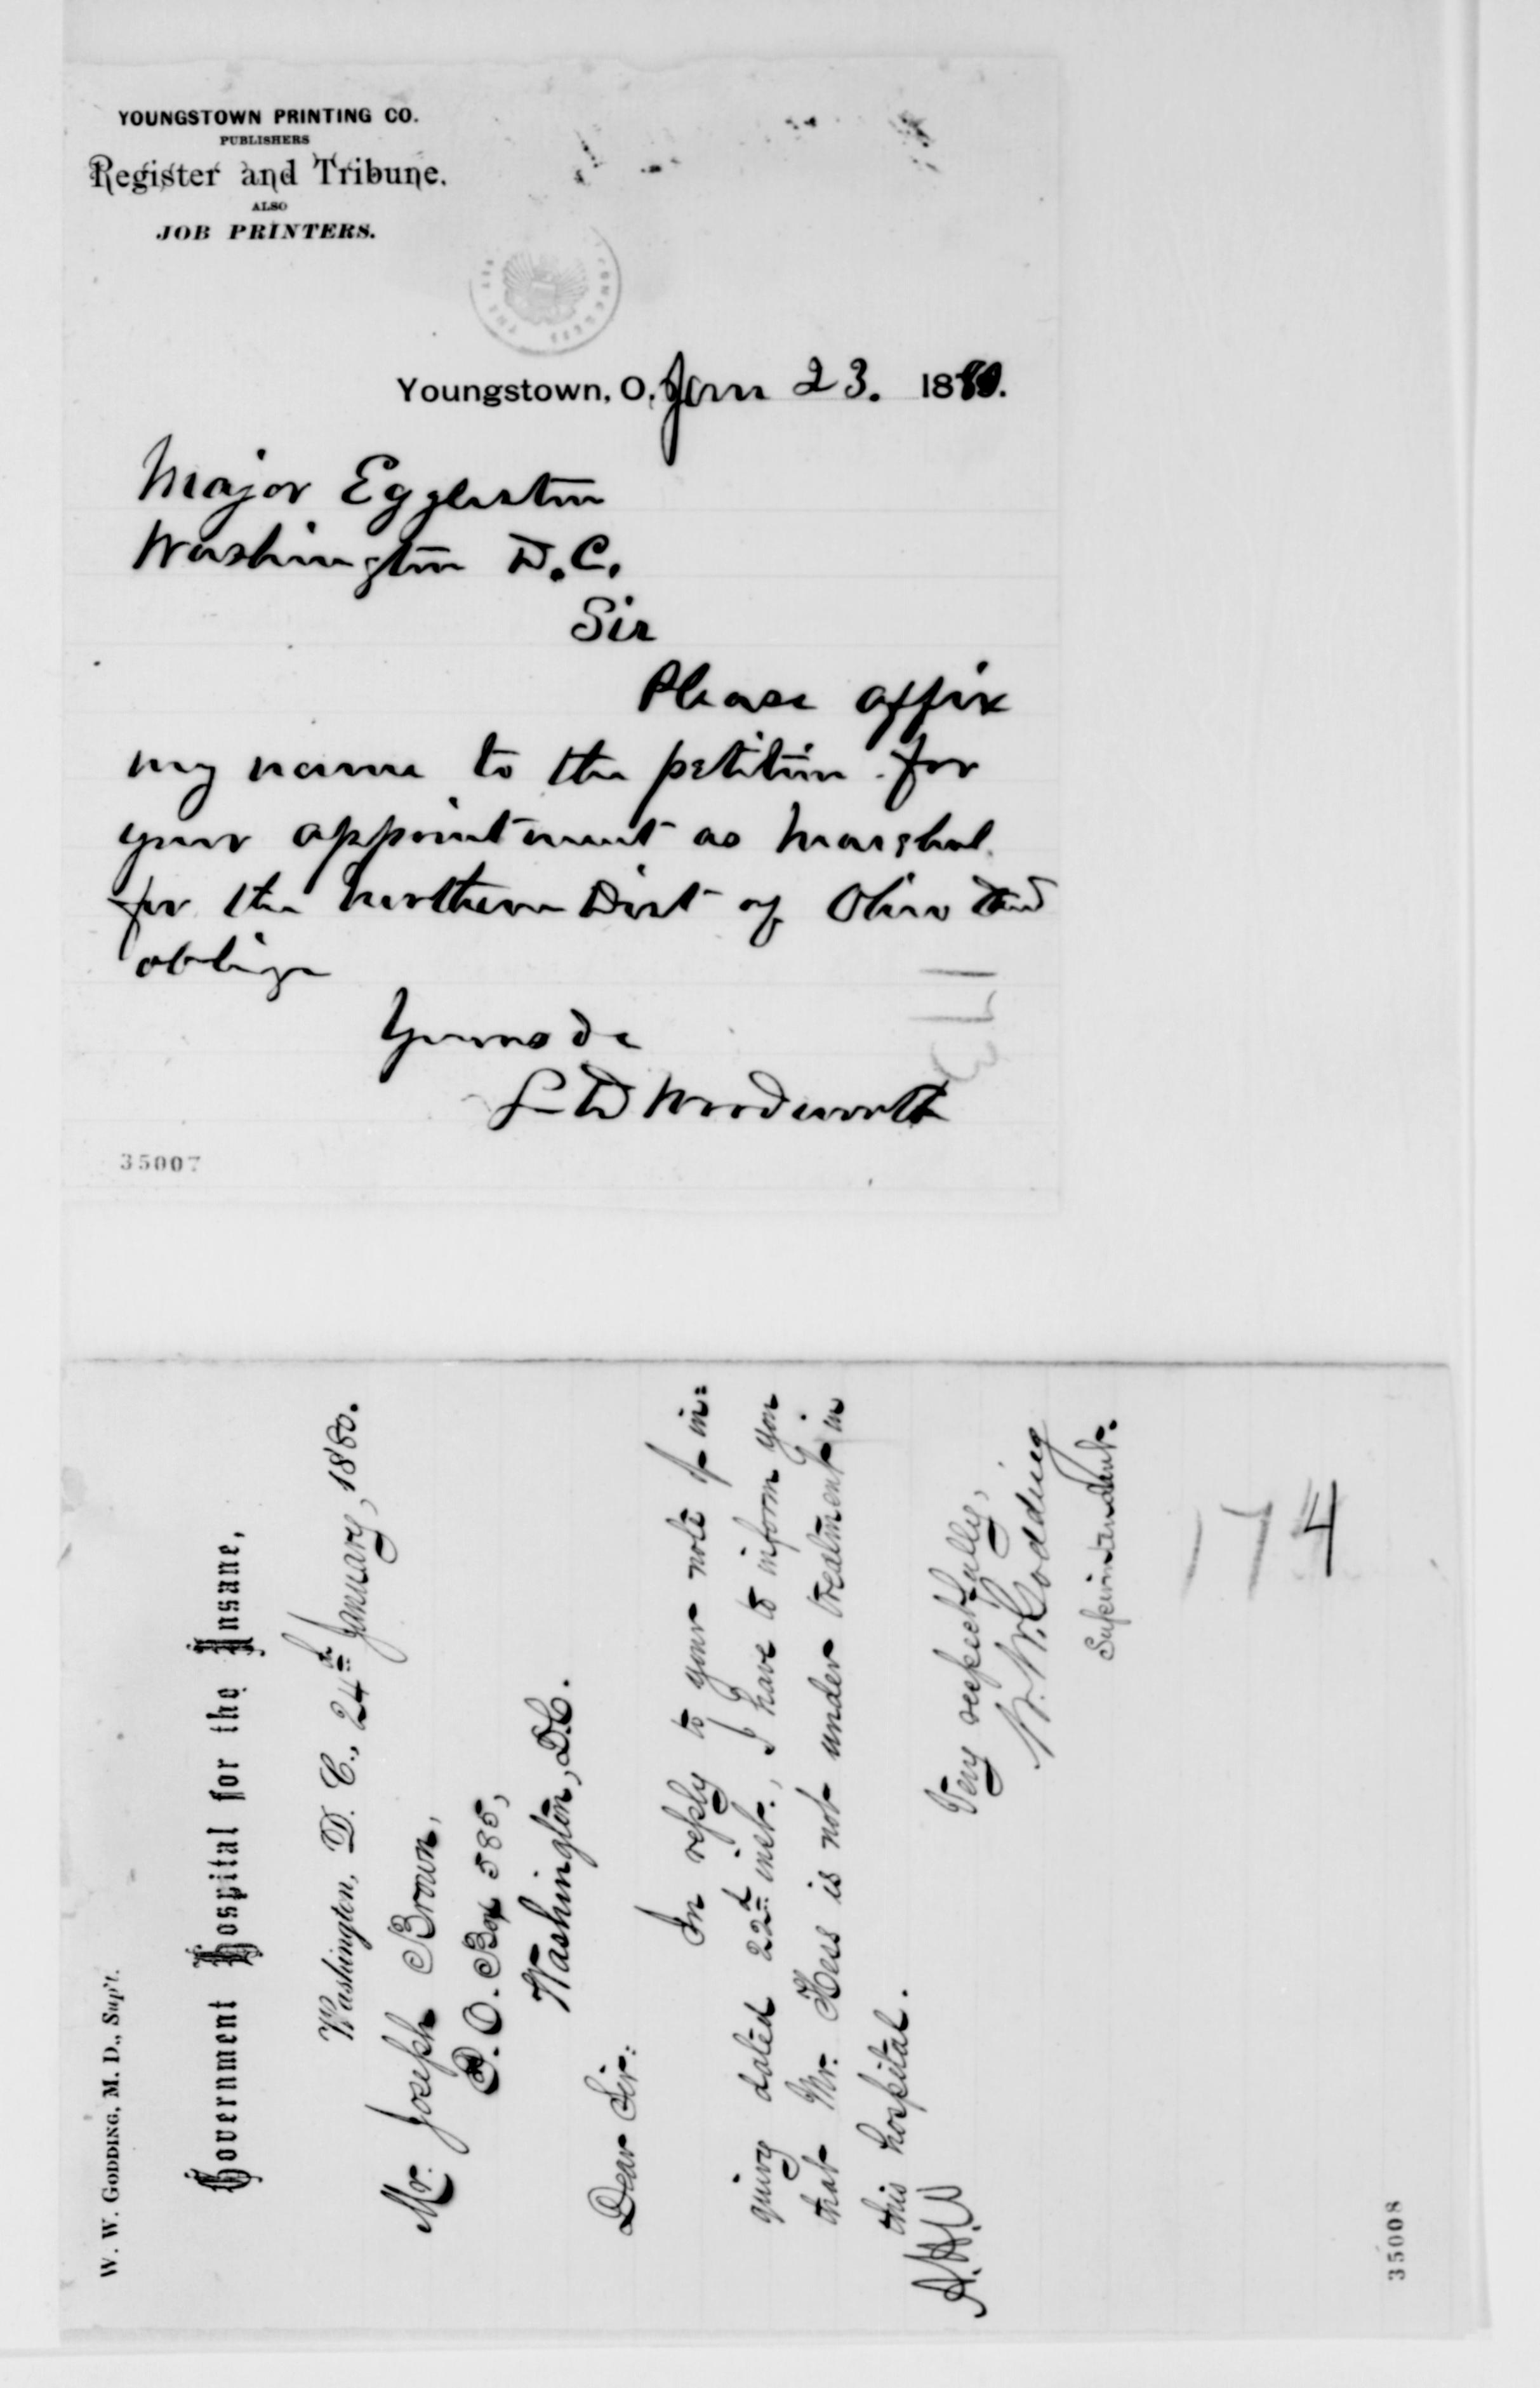 YOUNGSTOWN PRINTING CO.
PUBLISHERS
Register and Tribune.
ALSO
JOB PRINTERS.
Youngstown, O, Jan 23. 1880.
Major Eggleston
Washington D.C.
Sir
Please affix
my name to the petition for
your appointment as Marshal
for the Northern Dist of Ohio and
oblige
Yours &c
L D Woodworth
173
35007
W. W. GODDING, M. D., Sup't.
Government Hospital for the Insane,
Washington, D. C., 24th January, 1880.
Mr. Joseph Brown,
P. O. Box 585,
Washington, D.C.
Dear Sir:
In reply to your note of in=
quiry dated 22d inst., I have to inform you
that Mr. Hess is not under treatment in
this hospital.
Very respectfully,
W. W. Godding
Superintendent.
174
35008